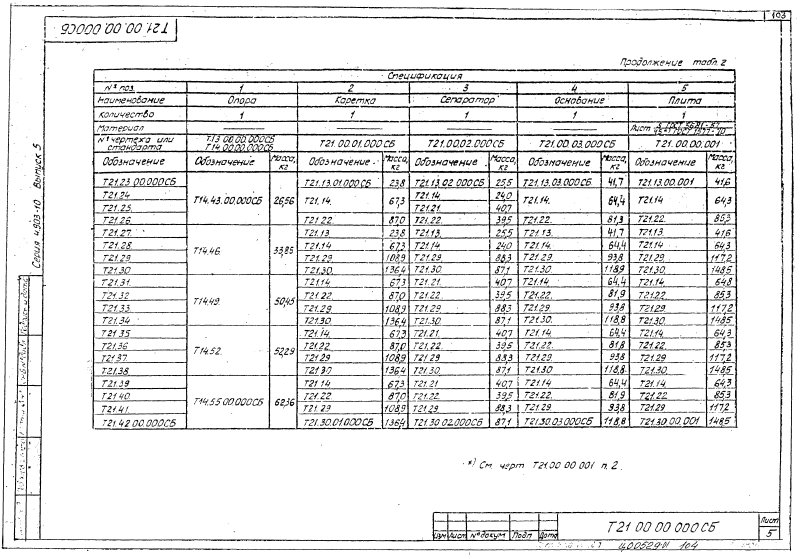 103
Т21.00.00.000СБ
Серия 4.903-10 Выпуск 5
Продолжение табл. 2
Спецификация
№ поз. 1 2 3 4 5
Наименование Опора Каретка Сепаратор Основание Плита
Количество 1 1 1 1 1
Материал — — — — Лист
№ чертежа или стандарта Т13.00.00.000СБ Т14.00.00.000СБ Т21.00.01.000СБ Т21.00.02.000СБ Т21.00.03.000СБ Т21.00.00.001
Обозначение Обозначение Масса, кг Обозначение Масса, кг Обозначение Масса, кг Обозначение Масса, кг Обозначение Масса, кг
Т21.23.00.000СБ Т14.43.00.000СБ 26,56 Т21.13.01.000СБ 23,8 Т21.13.02.000СБ 25,5 Т21.13.03.000СБ 41,7 Т21.13.00.001 41,6
Т21.24 Т21.14. 67,3 Т21.14. 24,0 Т21.14. 64,4 Т21.14 64,3
Т21.25. Т21.21. 40,7
Т21.26. Т21.22. 87,0 Т21.22. 39,5 Т21.22. 81,3 Т21.22. 85,3
Т21.27. Т14.46. 33,85 Т21.13 23,8 Т21.13. 25,5 Т21.13. 41,7 Т21.13. 41,6
Т21.28. Т21.14 67,3 Т21.14 24,0 Т21.14 64,4 Т21.14 64,3
Т21.29. Т21.29. 108,9 Т21.29. 88,3 Т21.29. 93,8 Т21.29. 117,2
Т21.30 Т21.30. 136,4 Т21.30. 87,1 Т21.30. 118,9 Т21.30. 148,5
Т21.31. Т14.49. 50,45 Т21.14 67,3 Т21.21. 40,7 Т21.14 64,4 Т21.14 64,8
Т21.32 Т21.22. 87,0 Т21.22. 39,5 Т21.22. 81,9 Т21.22. 85,3
Т21.33. Т21.29 108,9 Т21.29. 88,3 Т21.29. 93,8 Т21.29. 117,2
Т21.34 Т21.30. 136,4 Т21.30. 87,1 Т21.30. 118,8 Т21.30. 148,5
Т21.35 Т14.52. 52,29 Т21.14. 67,3 Т21.21. 40,7 Т21.14 64,4 Т21.14 64,3
Т21.36 Т21.22 87,0 Т21.22. 39,5 Т21.22. 81,8 Т21.22 85,3
Т21.37. Т21.29 108,9 Т21.29. 88,3 Т21.29. 93,8 Т21.29. 117,2
Т21.38. Т21.30 136,4 Т21.30. 87,1 Т21.30. 118,8. Т21.30. 148,5
Т21.39 Т14.55.00.000СБ 62,36 Т21.14 67,3 Т21.21 40,7 Т21.14 64,4 Т21.14 64,3
Т21.40. Т21.22. 87,0 Т21.22. 39,5 Т21.22. 81,9 Т21.22. 85,3
Т21.41. Т21.29 108,9 Т21.29. 88,3 Т21.29. 93,8 Т21.29 117,2
Т21.42.00.000СБ Т21.30.01.000СБ 136,4 Т21.30.02.000СБ 87,1 Т21.30.03.000СБ 118,8 Т21.30.00.001 148,5
*) См. черт Т21.00.00.001 п. 2.
Т21.00.00.000СБ
Лист
5
Изм Лист № докум Подп Дата
104